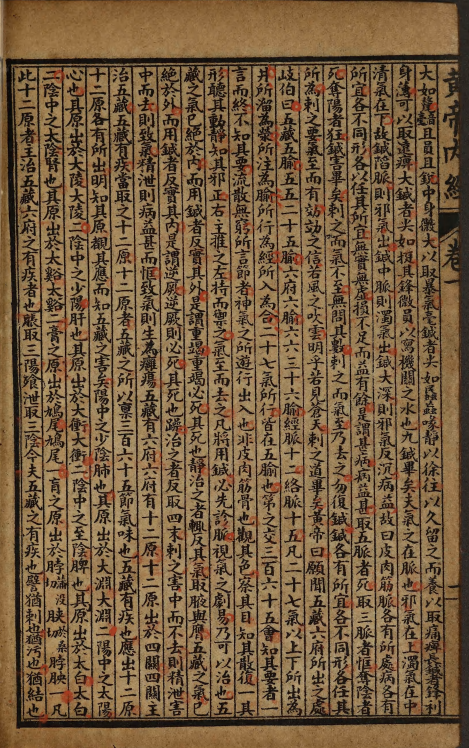 黃帝內經 卷一 一
大如氂且員且銳中身微大以取暴氣毫鍼者尖如蚊虻喙靜以徐往以久留之而養以取痛痺長鍼者鋒利
身薄可以取遠痺大鍼者尖如梃其鋒微員以寫機關之水也九鍼畢矣夫氣之在脈也邪氣在上濁氣在中
清氣在下故鍼陷脈則邪氣出鍼中脈則濁氣出鍼大深則邪氣反沉病益故曰皮肉筋脈各有所處病各有
所宜各不同形各以任其所宜無實無虛損不足而益有餘是謂甚病病益甚取五脈者死取三脈者恇奪陰者
死奪陽者狂鍼害畢矣刺之而氣不至無問其數刺之而氣至乃去之勿復鍼鍼各有所宜各不同形各任其
所為刺之要氣至而有効効之信若風之吹雲明乎若見蒼天刺之道畢矣黃帝曰願聞五藏六府所出之處
歧伯曰五藏五腧五五二十五腧六府六腧六六三十六腧經脈十二絡脈十五凡二十七氣以上下所出為
井所溜為滎所注為腧所行為經所入為合二十七氣所行皆在五腧也節之交三百六十五會知其要者一
言而終不知其要流散無窮所言節者神氣之所遊行出入也非皮肉筋骨也覩其色察其目知其散復一其
形聽其動靜知其邪正右主推之左持而禦之氣至而去之凡將用鍼必先診脈視氣之劇易乃可以治也五
藏之氣已絕於內而用鍼者反實其外是謂重竭重竭必死其死也靜治之者輙反其氣取腋與膺五藏之氣已
絕於外而用鍼者反實其內是謂逆厥逆厥則必死其死也躁治之者反取四末刺之害中而不去則精泄害
中而去則致氣精泄則病益甚而恇致氣則生為癰瘍五藏有六府六府有十二原十二原出於四關四關主
治五藏五藏有疾當取之十二原十二原者五藏之所以稟三百六十五節氣味也五藏有疾也應出十二原
十二原各有所出明知其原覩其應而知五藏之害矣陽中之少陰肺也其原出於大淵大淵二陽中之太陽
心也其原出於大陵大陵二陰中之少陽肝也其原出於大衝大衝二陰中之至陰脾也其原出於太白太白
二陰中之太陰腎也其原出於太谿太谿二膏之原出於鳩尾鳩尾一肓之原出於脖蒲沒切胦於桑切脖胦一凡
此十二原者主治五藏六府之有疾者也脹取三陽飱泄取三陰今夫五藏之有疾也譬猶刺也猶污也猶結也